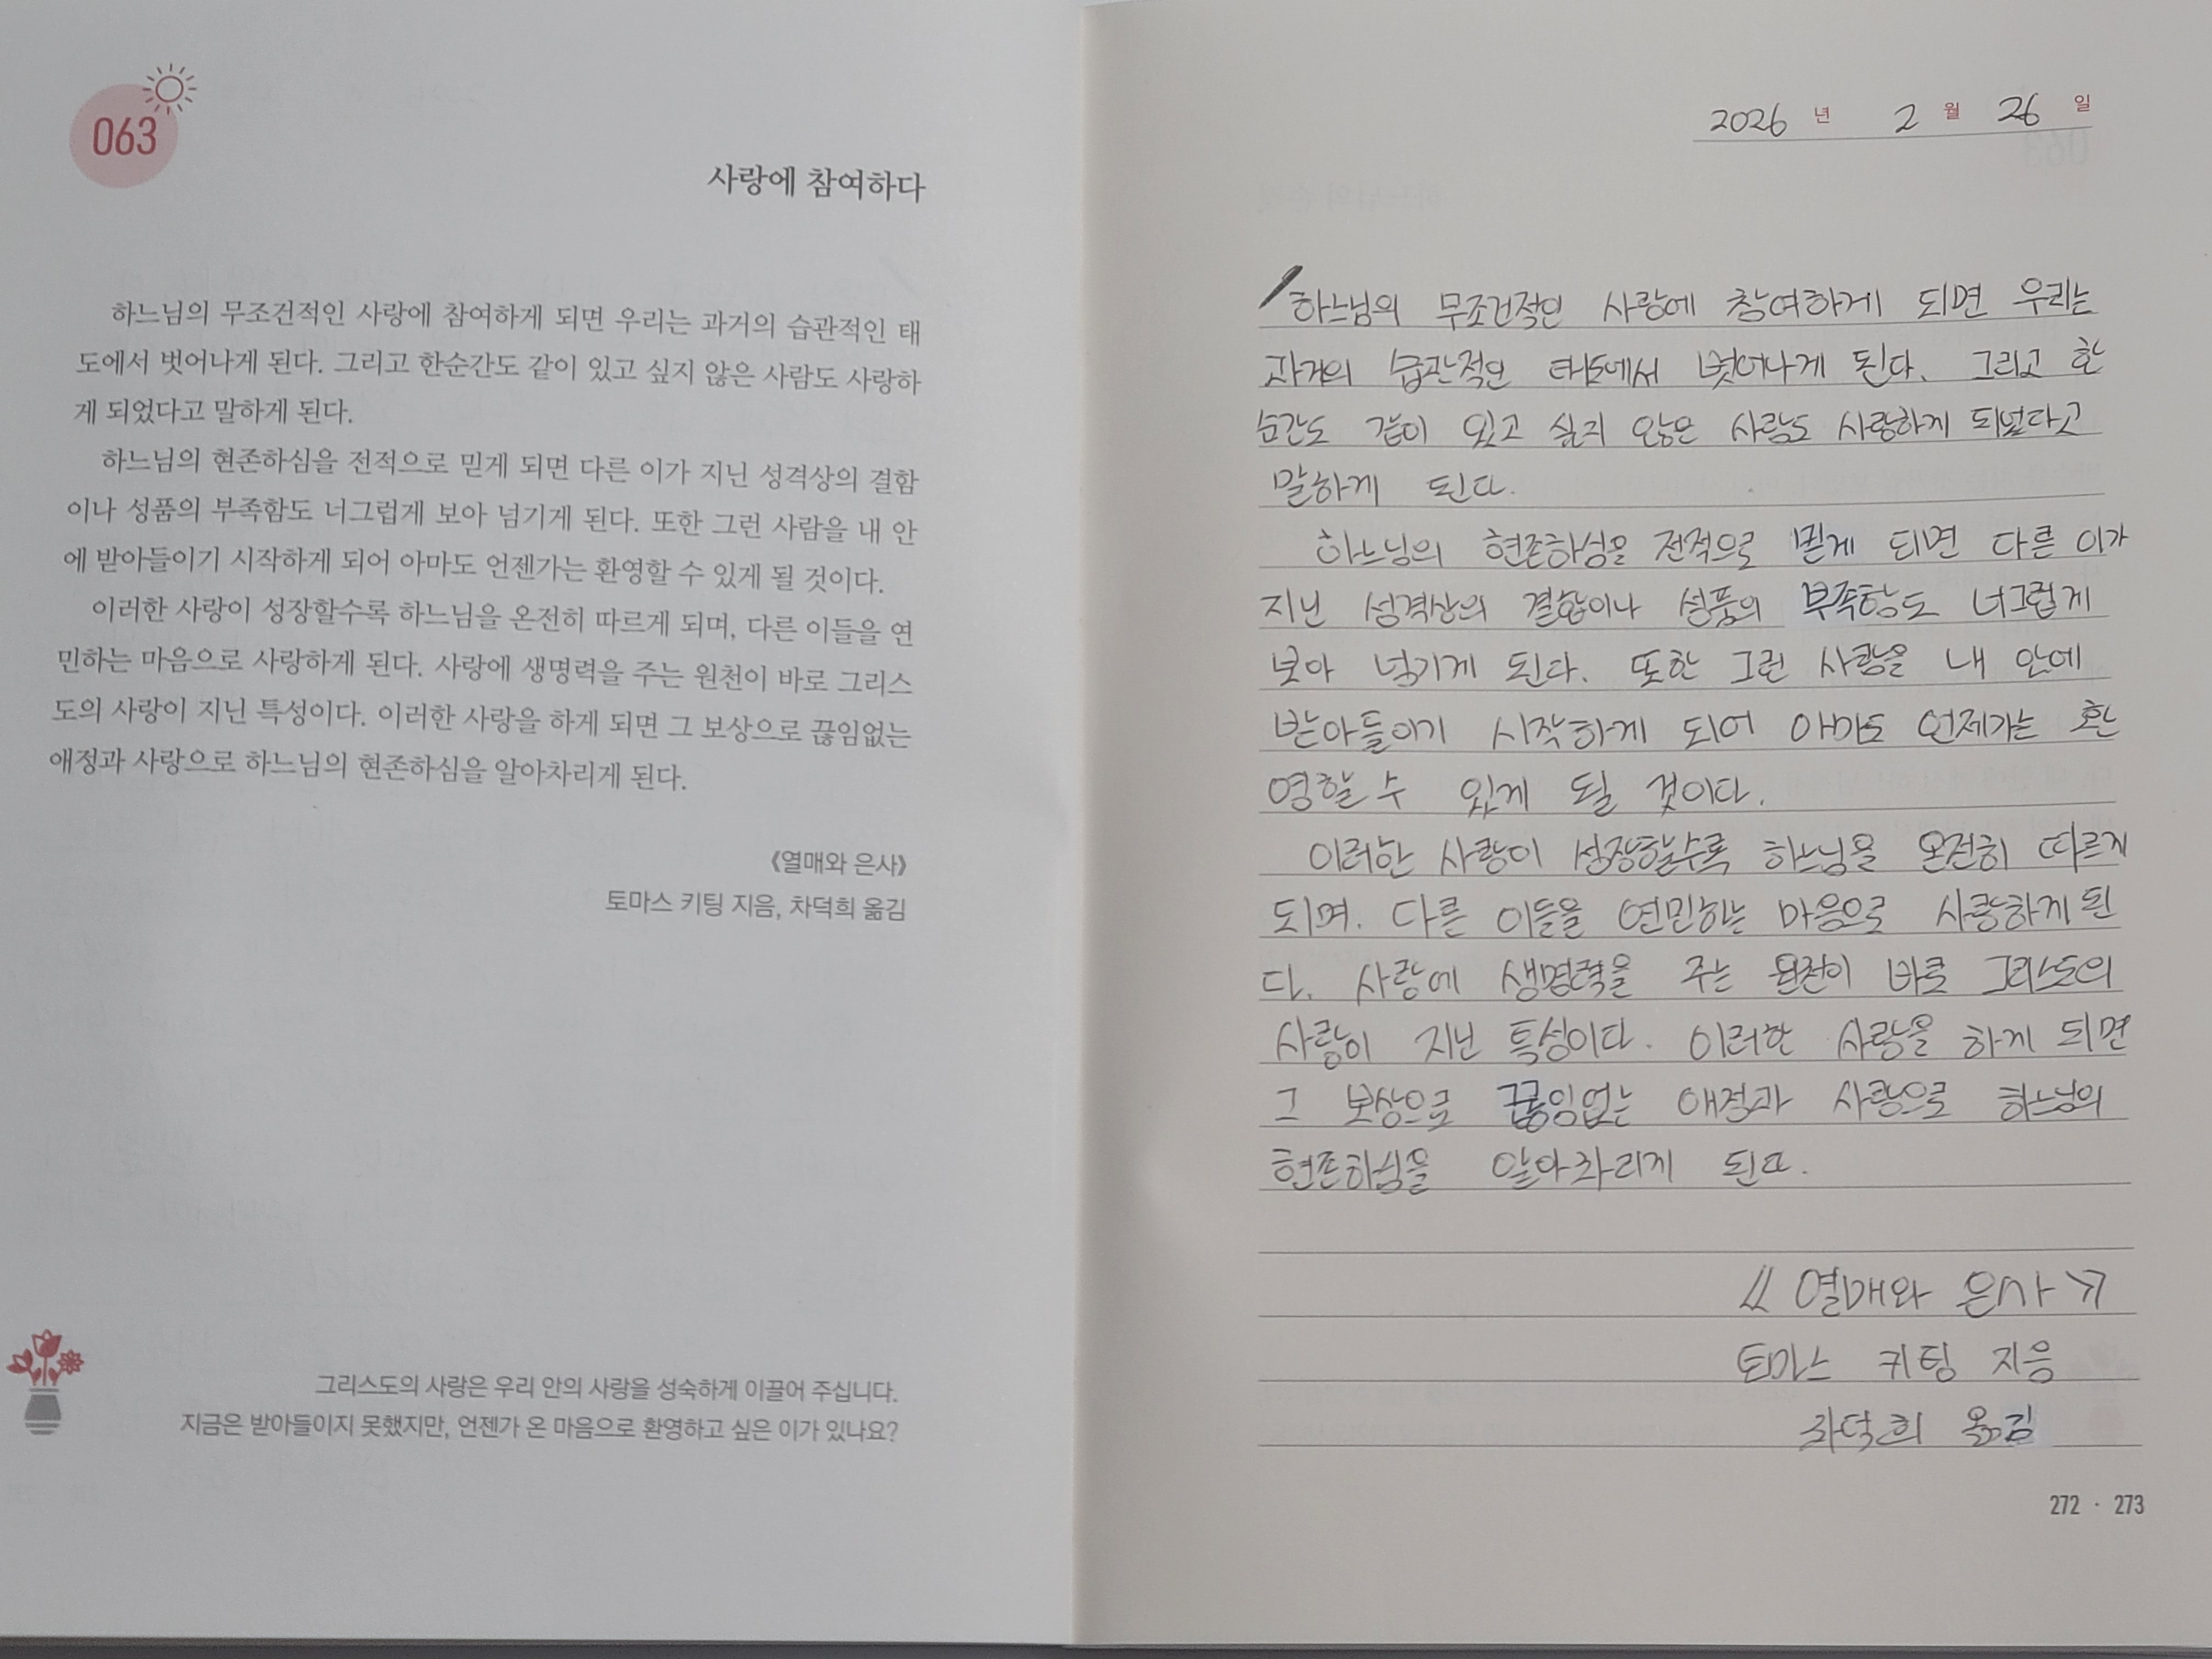 063
사랑에 참여하다
하느님의 무조건적인 사랑에 참여하게 되면 우리는 과거의 습관적인 태
도에서 벗어나게 된다. 그리고 한순간도 같이 있고 싶지 않은 사람도 사랑하
게 되었다고 말하게 된다.
하느님의 현존하심을 전적으로 믿게 되면 다른 이가 지닌 성격상의 결함
이나 성품의 부족함도 너그럽게 보아 넘기게 된다. 또한 그런 사람을 내 안
에 받아들이기 시작하게 되어 아마도 언젠가는 환영할 수 있게 될 것이다.
이러한 사랑이 성장할수록 하느님을 온전히 따르게 되며, 다른 이들을 연
민하는 마음으로 사랑하게 된다. 사랑에 생명력을 주는 원천이 바로 그리스
도의 사랑이 지닌 특성이다. 이러한 사랑을 하게 되면 그 보상으로 끊임없는
애정과 사랑으로 하느님의 현존하심을 알아차리게 된다.
《열매와 은사》
토마스 키팅 지음, 차덕희 옮김
그리스도의 사랑은 우리 안의 사랑을 성숙하게 이끌어 주십니다.
지금은 받아들이지 못했지만, 언젠가 온 마음으로 환영하고 싶은 이가 있나요?
2026 년 2 월 26 일
하느님의 무조건적인 사랑에 참여하게 되면 우리는
과거의 습관적인 태도에서 벗어나게 된다. 그리고 한
순간도 같이 있고 싶지 않은 사람도 사랑하게 되었다고
말하게 된다.
하느님의 현존하심을 전적으로 믿게 되면 다른 이가
지닌 성격상의 결함이나 성품의 부족함도 너그럽게
보아 넘기게 된다. 또한 그런 사람을 내 안에
받아들이기 시작하게 되어 아마도 언제가는 환
영할 수 있게 될 것이다.
이러한 사랑이 성장할수록 하느님을 온전히 따르게
되며. 다른 이들을 연민하는 마음으로 사랑하게 된
다. 사랑에 생명력을 주는 원천이 바로 그리스도의
사랑이 지닌 특성이다. 이러한 사랑을 하게 되면
그 보상으로 끊임없는 애정과 사랑으로 하느님의
현존하심을 알아차리게 된다.
《열매와 은사》
토마스 키팅 지음
차덕희 옮김
272 · 273